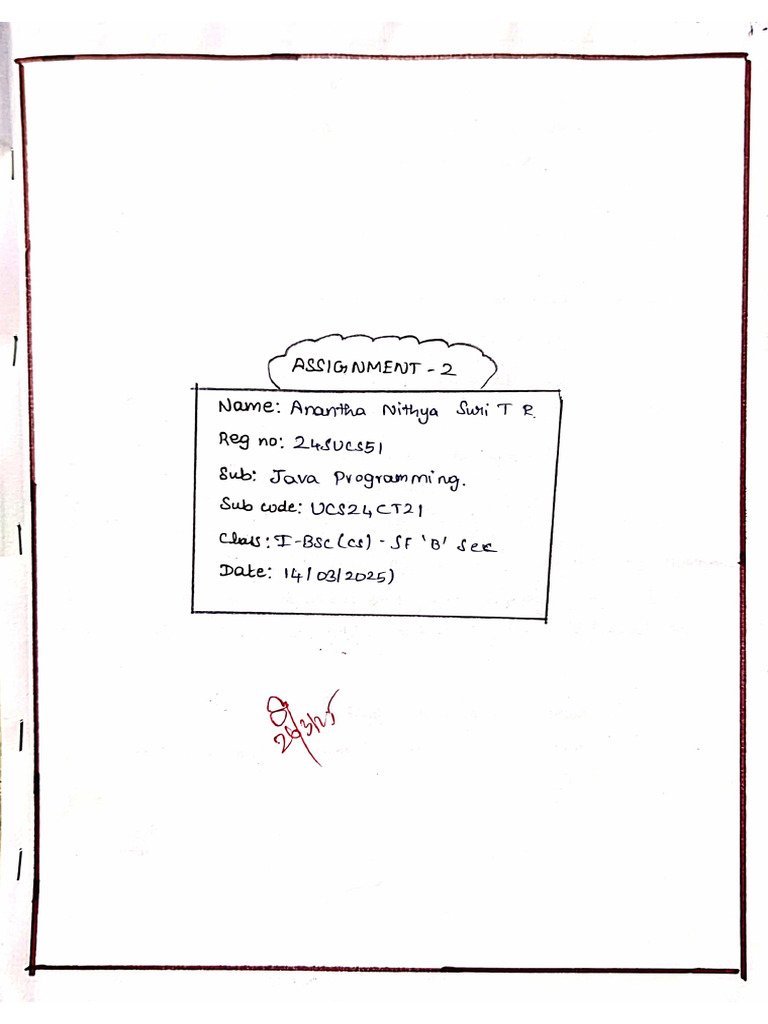 ASSIGNMENT - 2
Name: Anantha Nithya Suri T R.
Reg no: 24SUCS51
Sub: Java Programming.
Sub code: UCS24CT21
Class: I-BSC (CS) - SF 'B' Sec
Date: 14/03/2025)
26/3/25